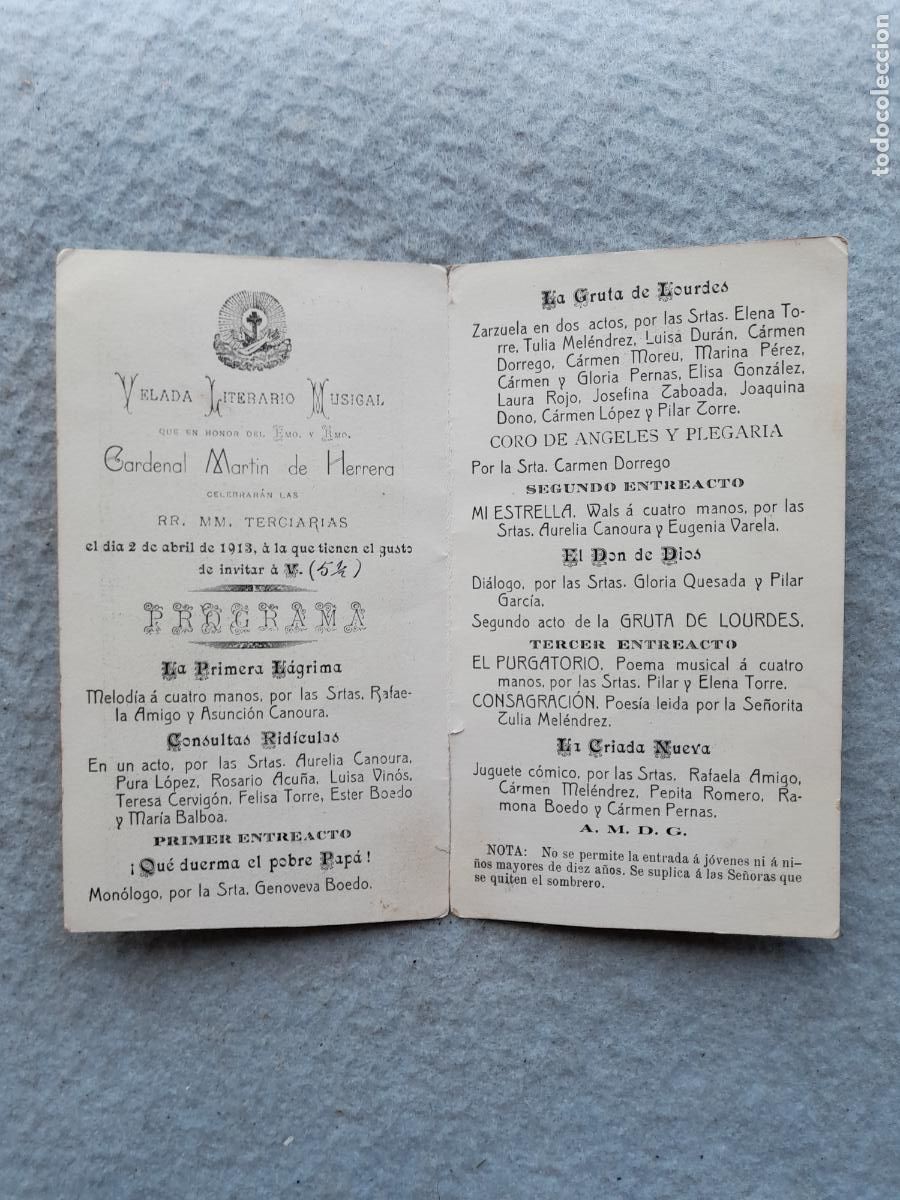 VELADA LITERARIO MUSICAL
QUE EN HONOR DEL EMO. Y RMO.
Cardenal Martin de Herrera
CELEBRARÁN LAS
RR. MM. TERCIARIAS
el dia 2 de abril de 1913, á la que tienen el gusto
de invitar á V. (5½)
PROGRAMA
La Primera Lágrima
Melodía á cuatro manos, por las Srtas. Rafae-
la Amigo y Asunción Canoura.
Consultas Ridículas
En un acto, por las Srtas. Aurelia Canoura,
Pura López, Rosario Acuña, Luisa Vinós,
Teresa Cervigón, Felisa Torre, Ester Boedo
y María Balboa.
PRIMER ENTREACTO
¡Qué duerma el pobre Papá!
Monólogo, por la Srta. Genoveva Boedo.
La Gruta de Lourdes
Zarzuela en dos actos, por las Srtas. Elena To-
rre, Tulia Meléndrez, Luisa Durán, Cármen
Dorrego, Cármen Moreu, Marina Pérez,
Cármen y Gloria Pernas, Elisa González,
Laura Rojo, Josefina Taboada, Joaquina
Dono, Cármen López y Pilar Torre.
CORO DE ANGELES Y PLEGARIA
Por la Srta. Carmen Dorrego
SEGUNDO ENTREACTO
MI ESTRELLA. Wals á cuatro manos, por las
Srtas. Aurelia Canoura y Eugenia Varela.
El Don de Dios
Diálogo, por las Srtas. Gloria Quesada y Pilar
García.
Segundo acto de la GRUTA DE LOURDES.
TERCER ENTREACTO
EL PURGATORIO. Poema musical á cuatro
manos, por las Srtas. Pilar y Elena Torre.
CONSAGRACIÓN. Poesía leida por la Señorita
Tulia Meléndrez.
La Criada Nueva
Juguete cómico, por las Srtas. Rafaela Amigo,
Cármen Meléndrez, Pepita Romero, Ra-
mona Boedo y Cármen Pernas.
A. M. D. G.
NOTA: No se permite la entrada á jóvenes ni á ni-
ños mayores de diez años. Se suplica á las Señoras que
se quiten el sombrero.
todocoleccion